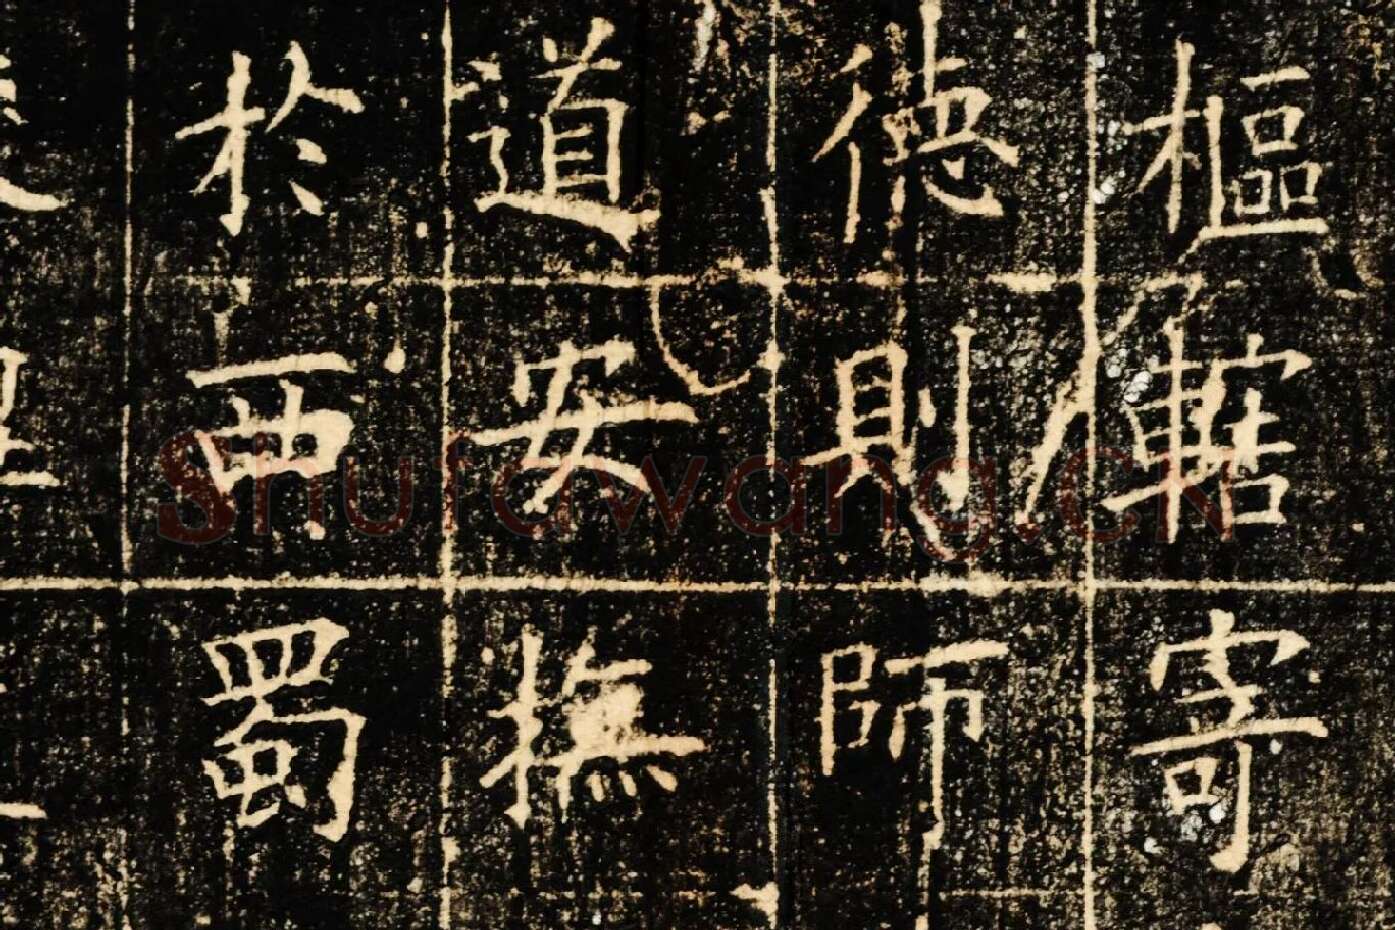 樞轄寄
德則師
道安撫
於西蜀
Shufawang.cn